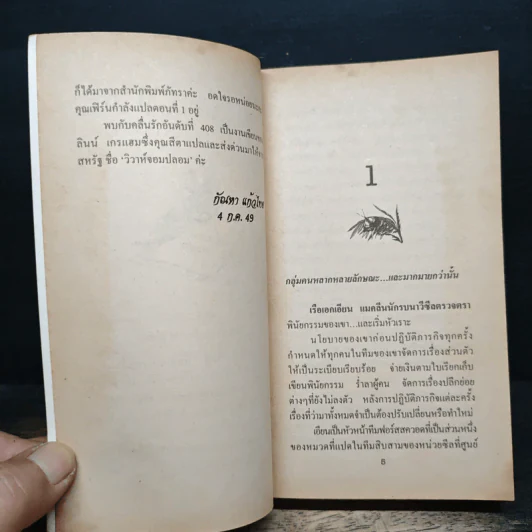 ก็ได้มาจากสำนักพิมพ์ภัทราค่ะ อดใจรอหน่อยนะคะ
คุณเพิร์นกำลังแปลตอนที่ 1 อยู่
พบกับคลื่นรักอันดับที่ 408 เป็นงานเขียนของ
ลินน์ เกรแฮมซึ่งคุณสีตาแปลและส่งด่วนมาให้จาก
สหรัฐ ชื่อ ‘วิวาห์จอมปลอม’ ค่ะ
กัณหา แก้วไทย
4 ก.ค. 49
1
กลุ่มคนหลากหลายลักษณะ...และมากมายกว่านั้น
เรือเอกเอียน แมคลีนนักรบนาวีซีลตรวจตรา
พินัยกรรมของเขา...และเริ่มหัวเราะ
นโยบายของเขาก่อนปฏิบัติภารกิจทุกครั้ง
กำหนดให้ทุกคนในทีมของเขาจัดการเรื่องส่วนตัว
ให้เป็นระเบียบเรียบร้อย จ่ายเงินตามใบเรียกเก็บ
เขียนพินัยกรรม ร่ำลาผู้คน จัดการเรื่องปลีกย่อย
ต่างๆที่ยังไม่ลงตัว หลังการปฏิบัติภารกิจแต่ละครั้ง
เรื่องที่ว่ามาทั้งหมดจำเป็นต้องปรับเปลี่ยนหรือทำใหม่
เอียนเป็นหัวหน้าทีมฟอร์สสควอดที่เป็นส่วนหนึ่ง
ของหมวดที่แปดในทีมสิบสามของหน่วยซีลที่ศูนย์
5